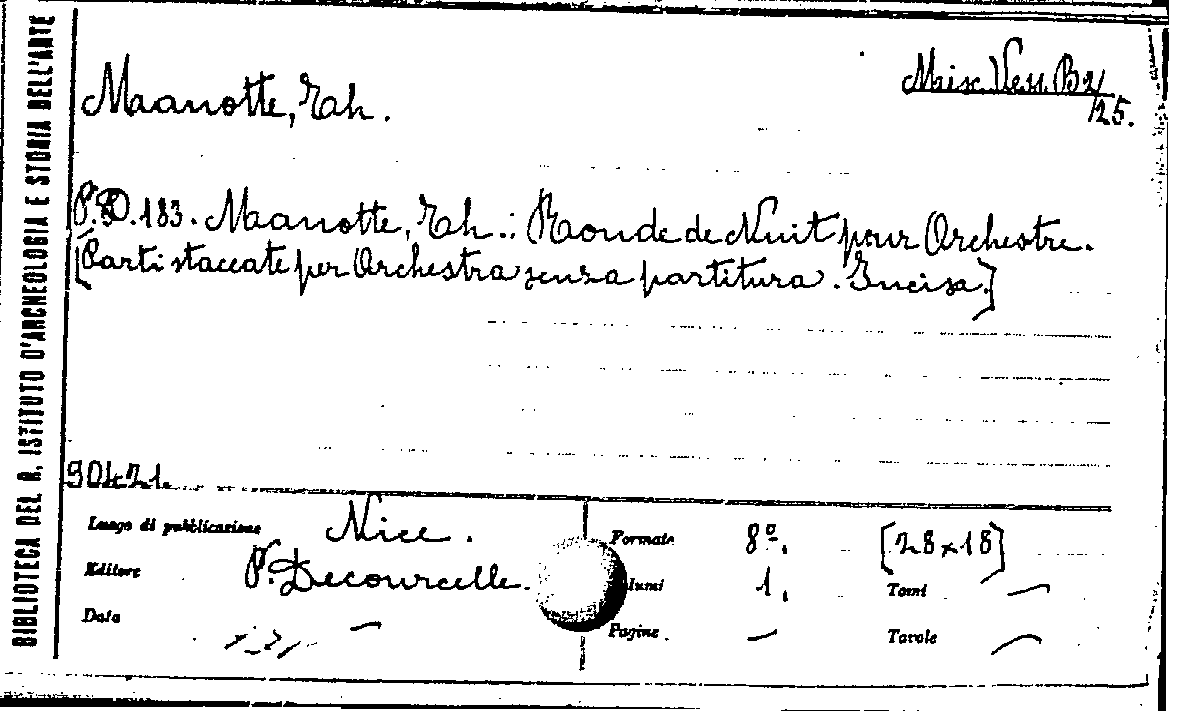 BIBLIOTECA DEL R. ISTITUTO D'ARCHEOLOGIA E STORIA DELL'ARTE
Misc. Vess. B2/
125.
Maanotte, Rh.
P.D.183. Maanotte, Rh.: Ronde de Nuit pour Orchestre.
[Parti staccate per Orchestra senza partitura. Incisa.]
90421.
Luogo di pubblicazione Nice.
Formato 8º. [28×18]
Editore P. Decourcelle.
lumi 1. Tomi —
Data —
Pagine — Tavole —